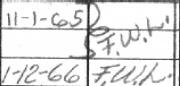 11-1-65
F.W.L.
1-12-66 F.W.L.